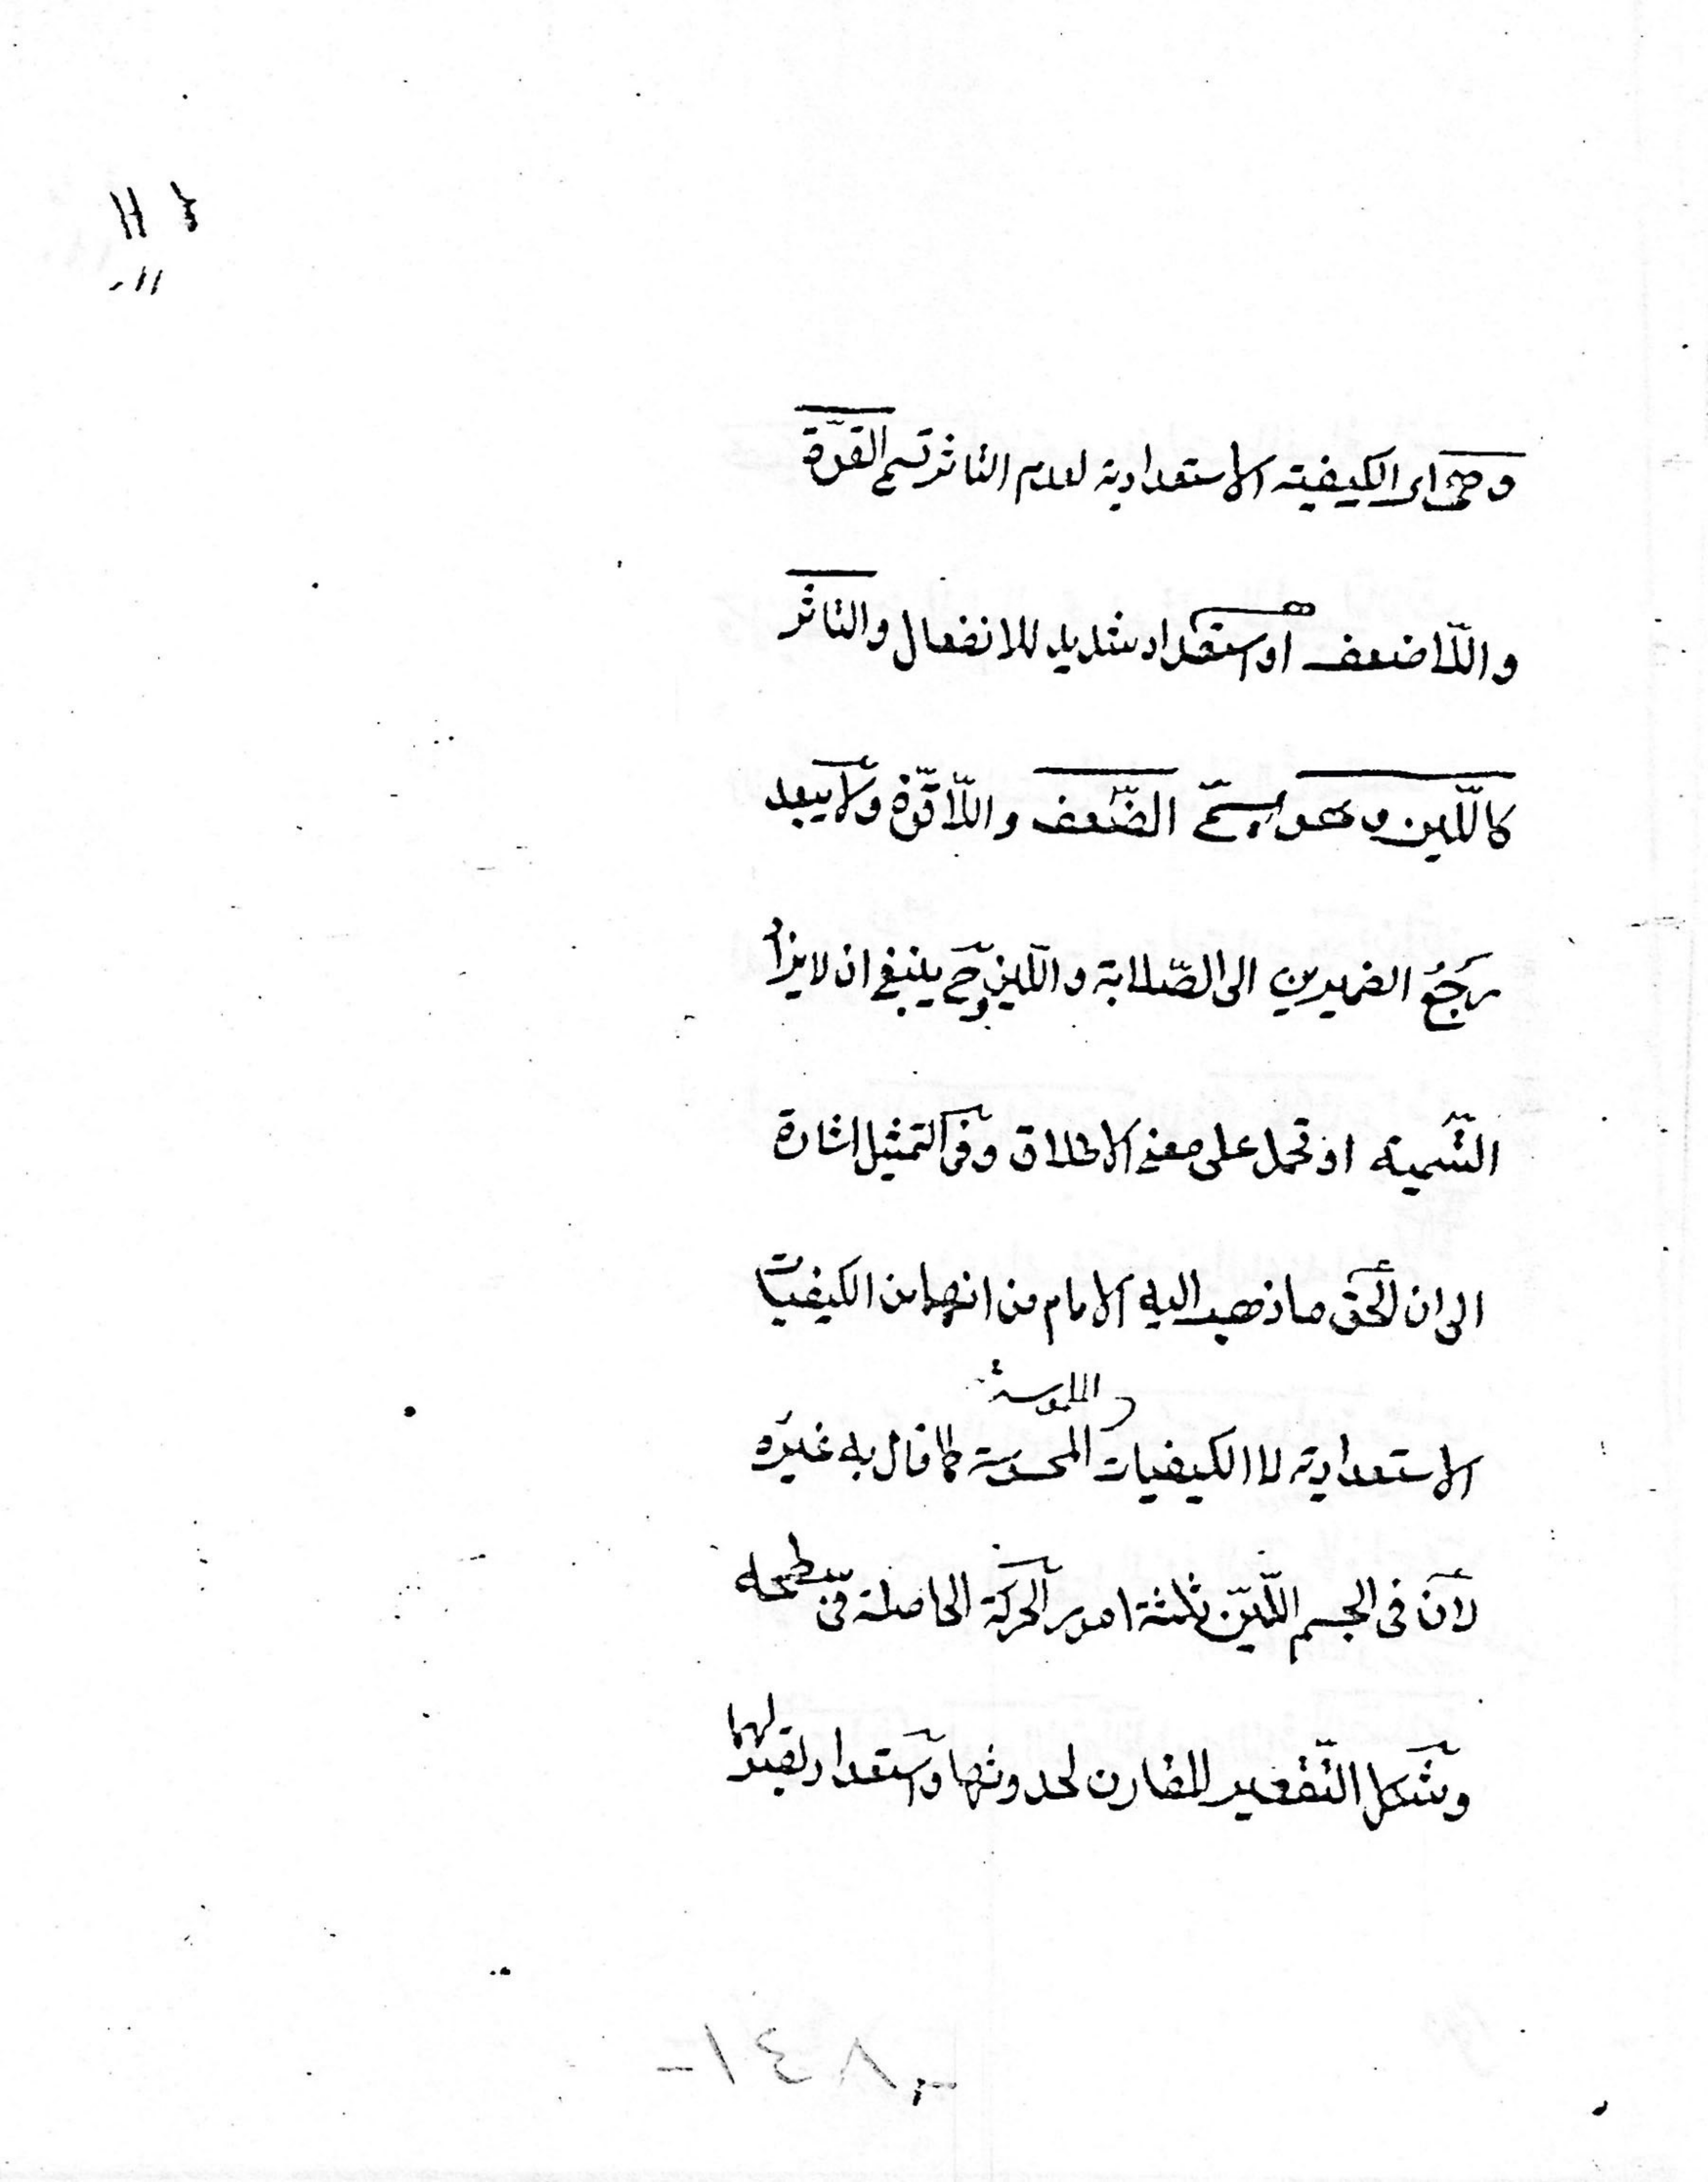 وهى اى الكيفية الاستعدادية لعدم التاثر تسمى القوّة
واللّا ضعف او استعداد شديد للانفعال والتاثّر
كاللّين وهو يسمّى الضّعف واللّا قوّة ولا يبعد
رَجَعُ الضميرين الى الصّلابة واللّين وح ينبغى ان لا يراد
التّسمية او تحمل على معنى الاطلاق وفى التمثيل اشارة
الى ان الحق ما ذهب اليه الامام من انهما من الكيفيّات
والملموسة
الاستعدادية لا الكيفيات المحسوسة كما قال به غيره
لانّ فى الجسم اللّيّن ثلثة امور الحركة الحاصلة فى سطحه
وشكل التّقعير المقارن لحدوثها واستعداد لقبولهما